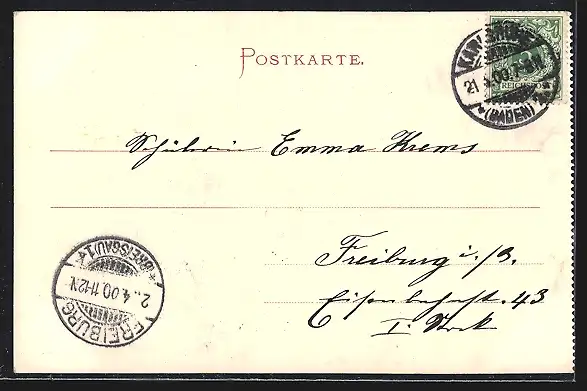 POSTKARTE.
KARLSRUHE
21 4 00. 7-8N
*(BADEN)*
REICHSPOST
Schülerin Emma Krems
Freiburg i./B.
Eisenbahnst. 43
I. Stock
*(BREISGAU) 1*
2..4.00. 11-12N
FREIBURG